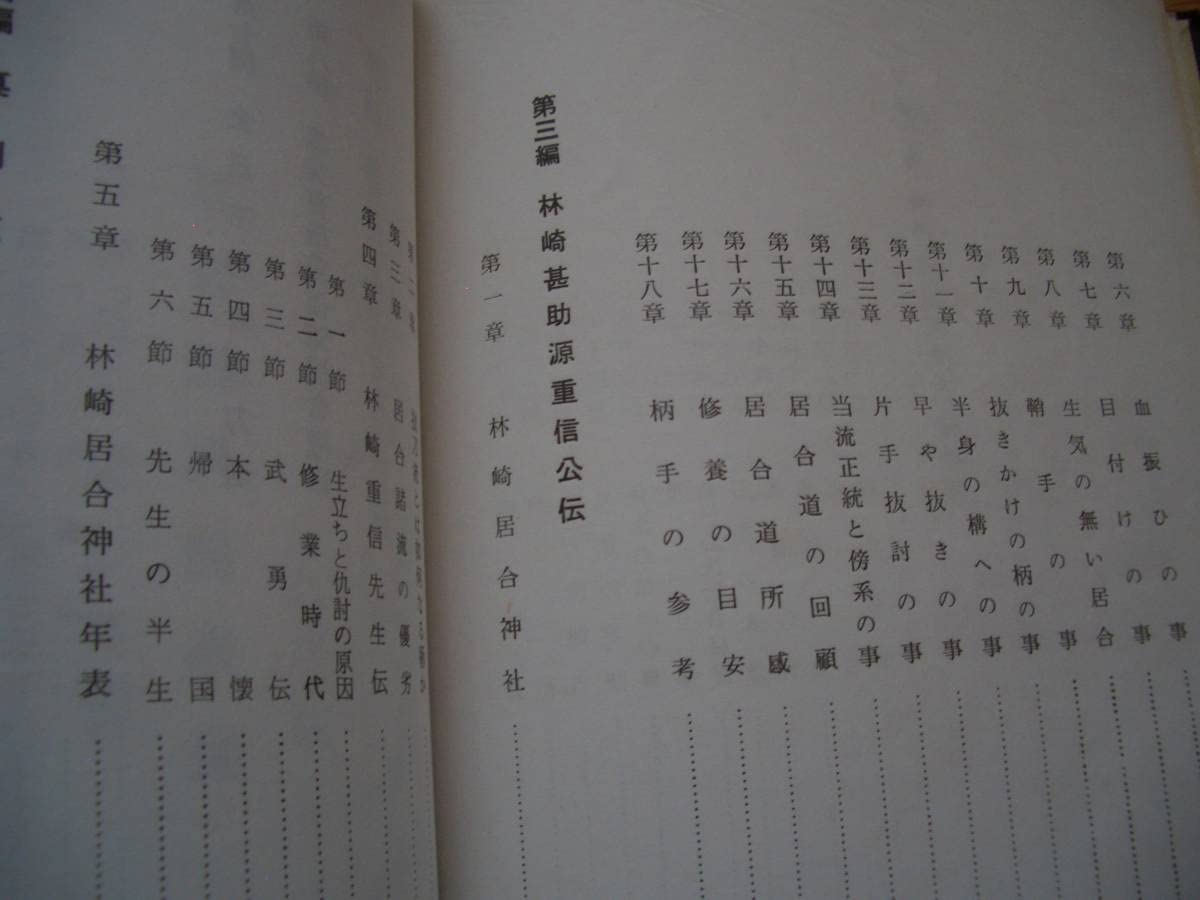 第六章 血振ひの事
第七章 目付けの事
第八章 生気の無い居合
第九章 鞘手の事
第十章 抜きかけの柄の事
第十一章 半身の構への事
第十二章 早や抜きの事
第十三章 片手抜討の事
第十四章 当流正統と傍系の事
第十五章 居合道の回顧
第十六章 居合道所感
第十七章 修養の目安
第十八章 柄手の参考
第三編 林崎甚助源重信公伝
第一章 林崎居合神社
第三章 居合諸流の優劣
第四章 林崎重信先生伝
第一節 生立ちと仇討の原因
第二節 修業時代
第三節 武勇伝
第四節 本懐
第五節 帰国
第六節 先生の半生
第五章 林崎居合神社年表